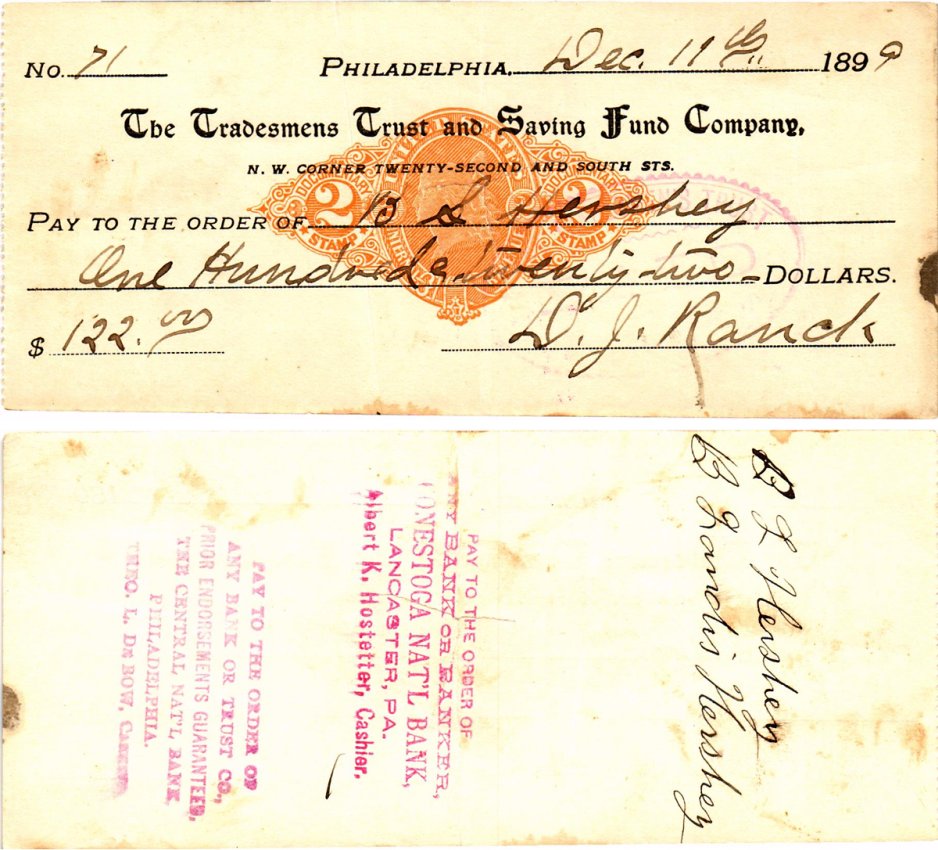 No. 71 PHILADELPHIA, Dec. 11th 1899
The Tradesmens Trust and Saving Fund Company,
N. W. CORNER TWENTY-SECOND AND SOUTH STS.
2 2
STAMP STAMP
PAY TO THE ORDER OF B L Hershey
One Hundred & twenty two DOLLARS.
$ 122.00
D. J. Ranck
B L Hershey
B Landis Hershey
PAY TO THE ORDER OF
ANY BANK OR BANKER,
CONESTOGA NAT'L BANK,
LANCASTER, PA.
Albert K. Hostetter, Cashier.
PAY TO THE ORDER OF
ANY BANK OR TRUST CO.,
PRIOR ENDORSEMENTS GUARANTEED,
THE CENTRAL NAT'L BANK,
PHILADELPHIA.
THEO. L. DE BOW, CASHIER